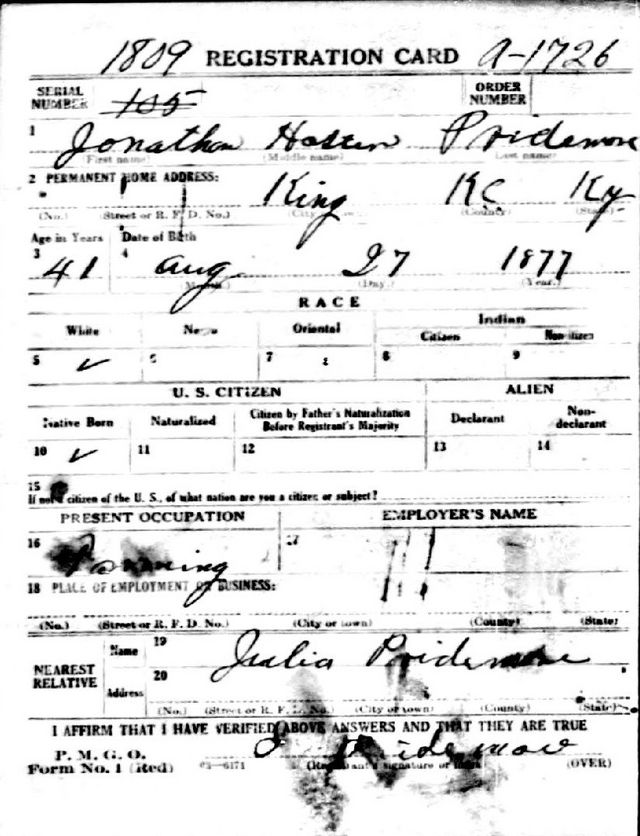 1809 REGISTRATION CARD A-1726
SERIAL NUMBER 105 ORDER NUMBER
1 Jonathan Pridemore
(First name) (Middle name) (Last name)
2 PERMANENT HOME ADDRESS: King KC Ky
(No.) (Street or R. F. D. No.) (City or town) (County) (State)
Age in Years Date of Birth
3 41 4 Aug 27 1877
(Month.) (Day.) (Year.)
RACE
White Negro Oriental Indian
Citizen Non-citizen
5 ✓ 6 7 8 9
U. S. CITIZEN ALIEN
Native Born Naturalized Citizen by Father's Naturalization Before Registrant's Majority Declarant Non-declarant
10 ✓ 11 12 13 14
15
If not a citizen of the U. S., of what nation are you a citizen or subject?
PRESENT OCCUPATION EMPLOYER'S NAME
16 Farming 17
18 PLACE OF EMPLOYMENT OR BUSINESS:
(No.) (Street or R. F. D. No.) (City or town) (County) (State)
NEAREST RELATIVE Name 19 Julia Pridemore
Address 20
(No.) (Street or R. F. D. No.) (City or town) (County) (State)
I AFFIRM THAT I HAVE VERIFIED ABOVE ANSWERS AND THAT THEY ARE TRUE
P. M. G. O.
Form No. 1 (Red) 03-6171 (Registrant's signature or mark) (OVER)